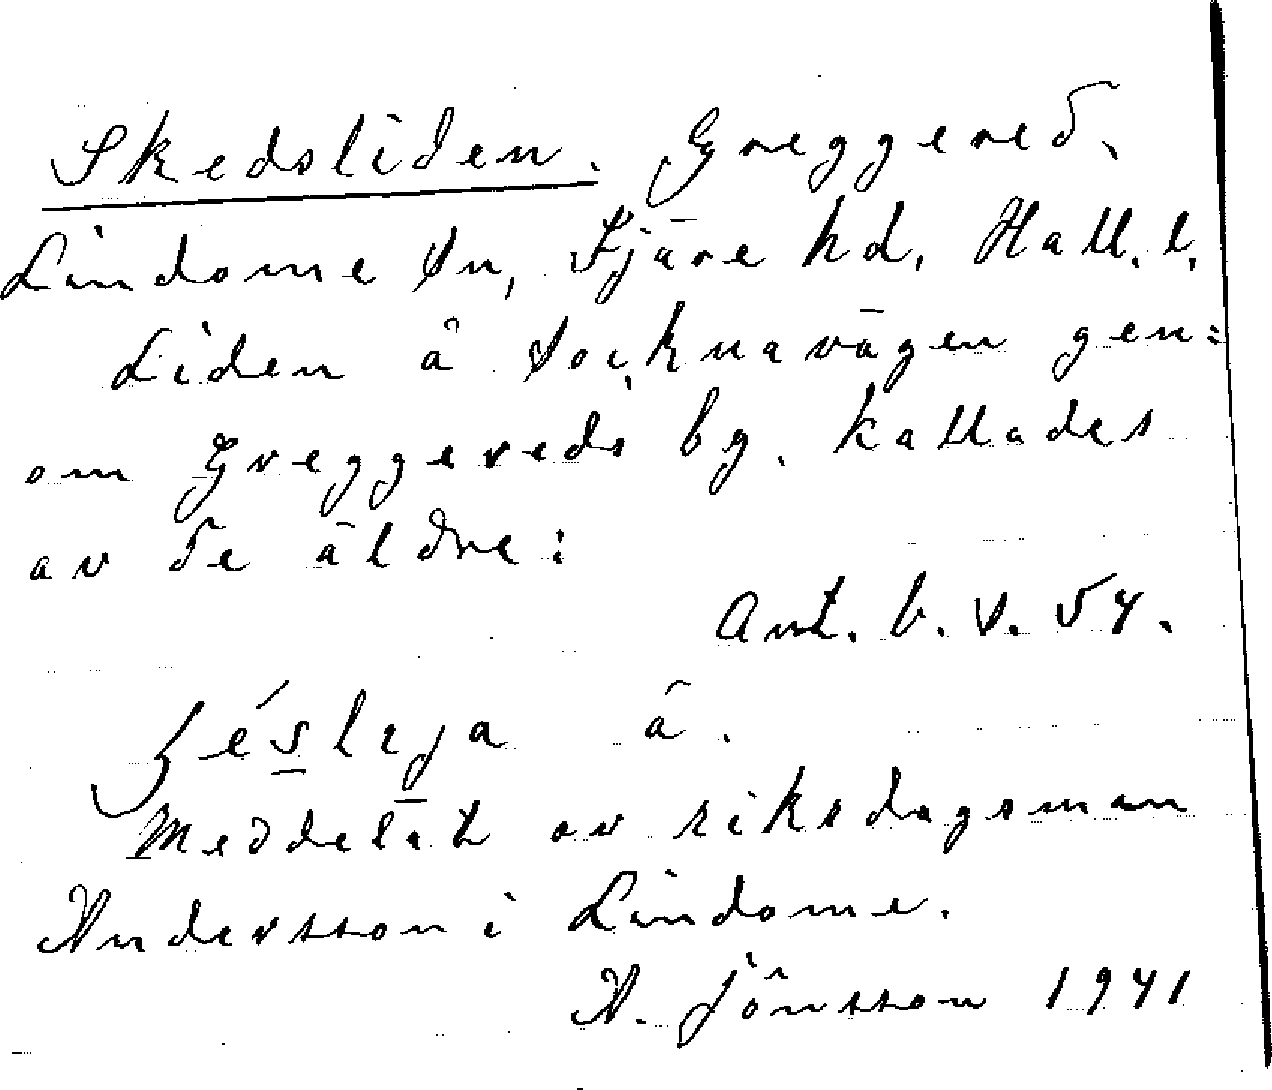 Skedsliden. Greggered.
Lindome sn, Fjäre hd, Hall. l.
Liden å socknavägen gen:
om Greggereds bg. kallades
av de äldre:
Ant. b. s. 54.
á.
Meddelat av riksdagsman
Andersson i Lindome.
A. Jönsson 1941